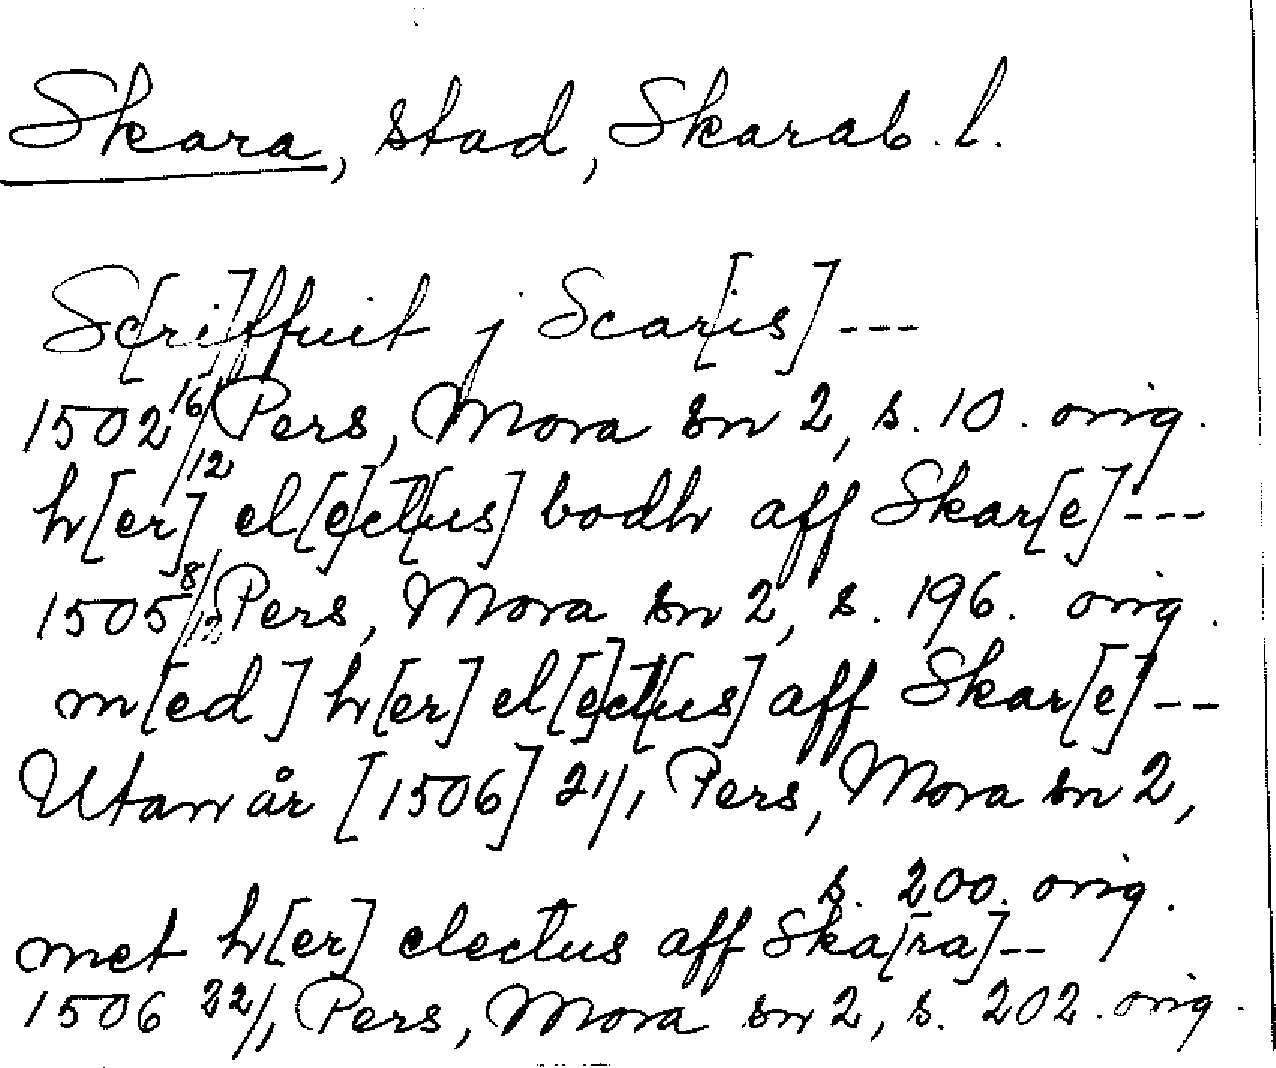 Skara, stad, Skarab. l.
Sc[ri]ffuit j Scar[is] ---
1502 16/12 Pers, Mora sn 2, s. 10. orig.
h[er] el[e]ct[us] bodh aff Skar[e] ---
1505 8/12 Pers, Mora sn 2, s. 196. orig.
m[ed] h[er] el[e]ct[us] aff Skar[e] --
Utan år [1506] 21/1 Pers, Mora sn 2,
s. 200. orig.
met h[er] electus aff Ska[ra] --
1506 22/1 Pers, Mora sn 2, s. 202. orig.